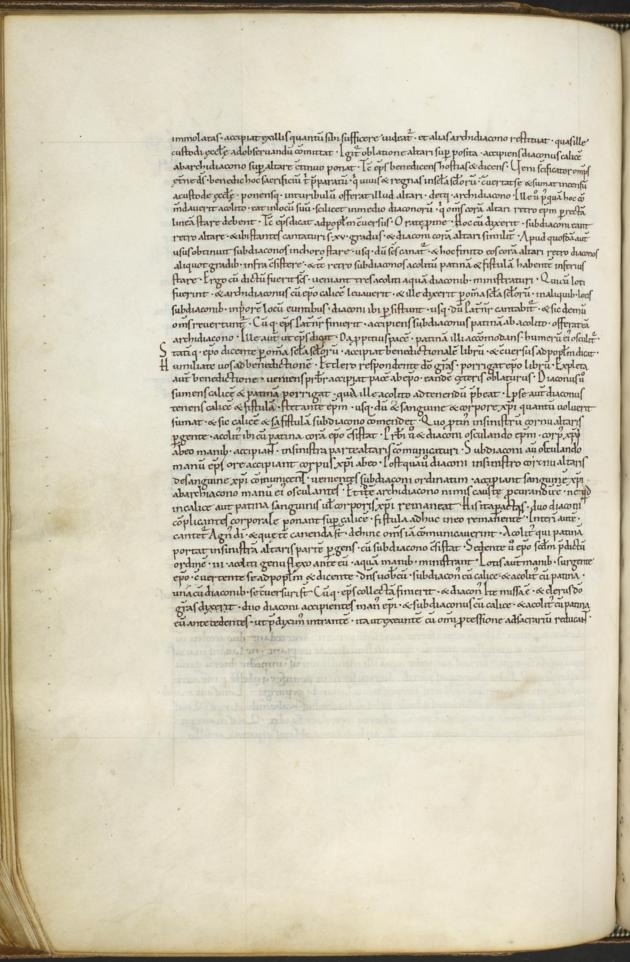 immolatas · accipiat ex illis quantū sibi sufficere videat̄ · et alias archidiacono restituat · quas ille
custodi ęcclę adobservandū cōmittat · Igit̄ oblatione altari sup̄ posita · accipiens diaconus calicē
abarchidiacono sup̄ altare cōtinuo ponat · Tc̄ ep̄s benedicens hostias & dicens · Veni sc̄ificator omp̄s
ęt̄ne ds̄ · benedic hoc sacrificiū t̄ p̄paratū · q̄ vivis & regnas insc̄la sc̄lorū · & sumat incensū
acustode ęcclę · ponensq · inturibulū offerat illud altari · detq · archidiacono · Ille ū
mandaverit acolito · eat inlocū suū · scilicet inmedio diaconorū · q̄ om̄s corā altari retro ep̄m
lineā stare debent · Tc̄ ep̄s dicat adpopl̄m cversus · Orate p̄ me · Hoc cū dixerit · subdiaconi eant
retro altare · & ibi stantes cantaturi s̄ · xv · gradus · & diaconi corā altari similit̄ · Apud quosdā aūt
usus obtinuit subdiaconos inchoro stare · usq · dū sc̄s canat̄ · & hoc finito eos corā altari retro diaconos
aliquot gradib · infra cōsistere · & tc̄ retro subdiaconos acolitū patinā & fistulā habente inferius
stare · Ergo cū dictū fuerit sc̄s · veniant tres acoliti aquā diaconib · ministraturi · Qui cū loti
fuerint · & archidiaconus cū ep̄o calicē levaverit · & ille dixerit p̄ om̄a sc̄la sc̄lorū · inaliquib · locis
subdiaconib · inp̄ore locū euntibus · diaconi ibi p̄sistunt · usq · dū Pat̄ nr̄ cantabit̄ · & sic demū
om̄s revertunt̄ · Cū q · ep̄s Pat̄ nr̄ finierit · accipiens subdiaconus patinā ab acolito · offerat eā
archidiacono · Ille aūt ut ep̄s dicit · Da p̄pitius pacē · patinā illi accōmodans · humerū ei osculit̄
Statiq · ep̄o dicente p̄ om̄a sc̄la sc̄lorū · accipiat benedictionalē librū · & cversus adpopl̄m dicat ·
Humiliate vos adbenedictionē · Et clero respondente dō grās · porrigat ep̄o librū · Expleta
aūt benedictione · veniens p̄br̄ accipiat pacē ab ep̄o · eandē ceteris oblaturus · Diaconus ū
sumens calicē & patinā porrigat · quā ille acolito adtenendū p̄beat · Ipse aūt diaconus
tenens calicē & fistulā · stet ante ep̄m · usq · dū & sanguine & corpore xp̄i quantū voluerit
sumat · & sic calicē & fistulā subdiacono cōmendet · Quo p̄tin insinistrū cornu altaris
p̄gente · acolit̄ ibi cū patina corā ep̄o cōsistat · Pr̄br̄i ū & diaconi osculando ep̄m · corp̄ xp̄i
ab eo manib · accipiant · insinistra parte altaris cōmunicaturi · Subdiaconi aūt osculando
manū ep̄i · ore accipiant corpus xp̄i ab eo · Postquā ū diaconi insinistro cornu altaris
desanguine xp̄i cōmunicent · venientes subdiaconi ordinatim · accipiant sanguinē xp̄i
abarchidiacono manū ei osculantes · Et ite archidiacono nimis caute p̄curandū ē · ne q̄d
incalice aūt patina sanguinis vł corporis xp̄i remaneat · His ita pactis · duo diaconi
cōplicantes corporale ponant sup̄ calicē · fistula adhuc in eo remanente · Interi aūt ·
cantet̄ Agn̄ di · & que tc̄ canenda s̄t · donec om̄s iā cōmunicaverint · Acolit̄ qui patinā
portat insinistrā altaris partē p̄gens · cū subdiacono cōsistat · Sedente ū ep̄o scd̄m p̄dictū
ordinē · iii · acoliti genu flexo ante eū · aquā manib · ministrant · Lotis aūt manib · surgente
ep̄o · cvertente se adpopl̄m & dicente · Dn̄s vobcū · subdiacon̄ cū calice · & acolit̄ cū patina ·
unā cū diaconib · se cversuri s̄t · Cū q · ep̄s collectā finierit · & diacon̄ Ite missa ē · & clerus dō
grās dixerit · duo diaconi accipientes manū ep̄i · & subdiaconus cū calice · & acolit̄ cū patina
eū antecedentes · ut p̄dixim̄ intrante · ita ut exeunte cū omi p̄cessione adsacrariū reducant ·